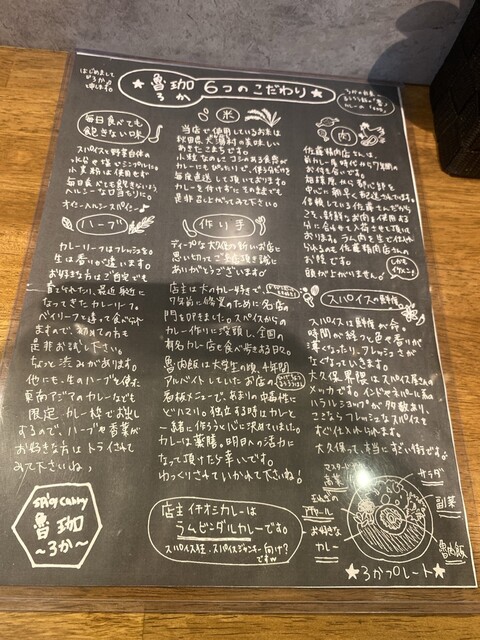 はじめまして
ろか
と申します。
★魯珈 6つのこだわり★
ろか
毎日食べても
飽きない味
スパイスと野菜自体の
水分や塩でシンプルに。
小麦粉は使用せず
毎日食べても飽きないよう
ヘルシーな口当たりに。
オイニーヘルシースパイス!
ハーブ
カレーリーフはフレッシュを。
生は香りが違います。
お好きな方はご自宅でも
育てられたり、最近身近に
なってきたカレーリーフ。
ベイリーフと違って食べられ
ますので、初めての方も
是非お試し下さい。
ちょっと渋みがあります。
他にも、生のハーブを使った
東南アジアのカレーなども
限定カレー枠でお出し
するので、ハーブや香菜が
お好きな方はトライされて
みて下さいね♪
spicy curry
魯珈
～ろか～
米
当店で使用しているお米は
秋田県大潟村の美味しい
あきたこまちです。
小粒なのにコシのある食感が
カレーにもぴったりで、使う分だけを
毎度直送して頂いております。
カレーを付けずにそのままでも
是非召し上がってみて下さい♪
作り手
ディープな大久保の新しいお店に
思い切ってご来店頂き誠に
ありがとうございます。
店主は大のカレー好きで、
7年前に修業のために名店の
門を叩きました。スパイスからの
カレー作りに没頭し、全国の
有名カレー店を食べ歩きする日々。
魯肉飯は大学生の頃、4年間
アルバイトしていたお店の
看板メニューで、あまりの中毒性
にドハマり。独立する時はカレーと
一緒に作ろうと心に決めていました。
カレーは薬膳。明日への活力に
なって頂けたら幸いです。
ゆっくりされていかれて下さいね♪
店主イチオシカレーは
ラムビンダルカレーです。
スパイス狂・スパイスジャンキー向け?
ですw
肉
佐藤精肉店さんは、
前カレー屋時代から7年間
のお付き合い。
お店を中心に
配送されています。
信頼している佐藤さんだから
こそ、新鮮なお肉を使用する
分に合わせて入荷させて頂いて
おります。ラム肉を生で仕入れ
られるのも佐藤精肉店さんの
お陰です。
頭が上がりません。
しかも
イケメン♡
スパイスの鮮度
スパイスは鮮度が命。
時間が経つと色や香りが
薄くなったり、フレッシュさが
なくなっていきます。
大久保界隈はスパイス屋さんの
メッカです。インドやネパールに系る
ハラルフードのお店が多数あり、
ここならフレッシュなスパイスを
すぐ仕入れられます。
大久保って、本当にすごい街です。
マスタード
高菜
玉ねぎの
アチャール
お好きな
カレー
サラダ
副菜
魯肉飯
★ろかプレート★